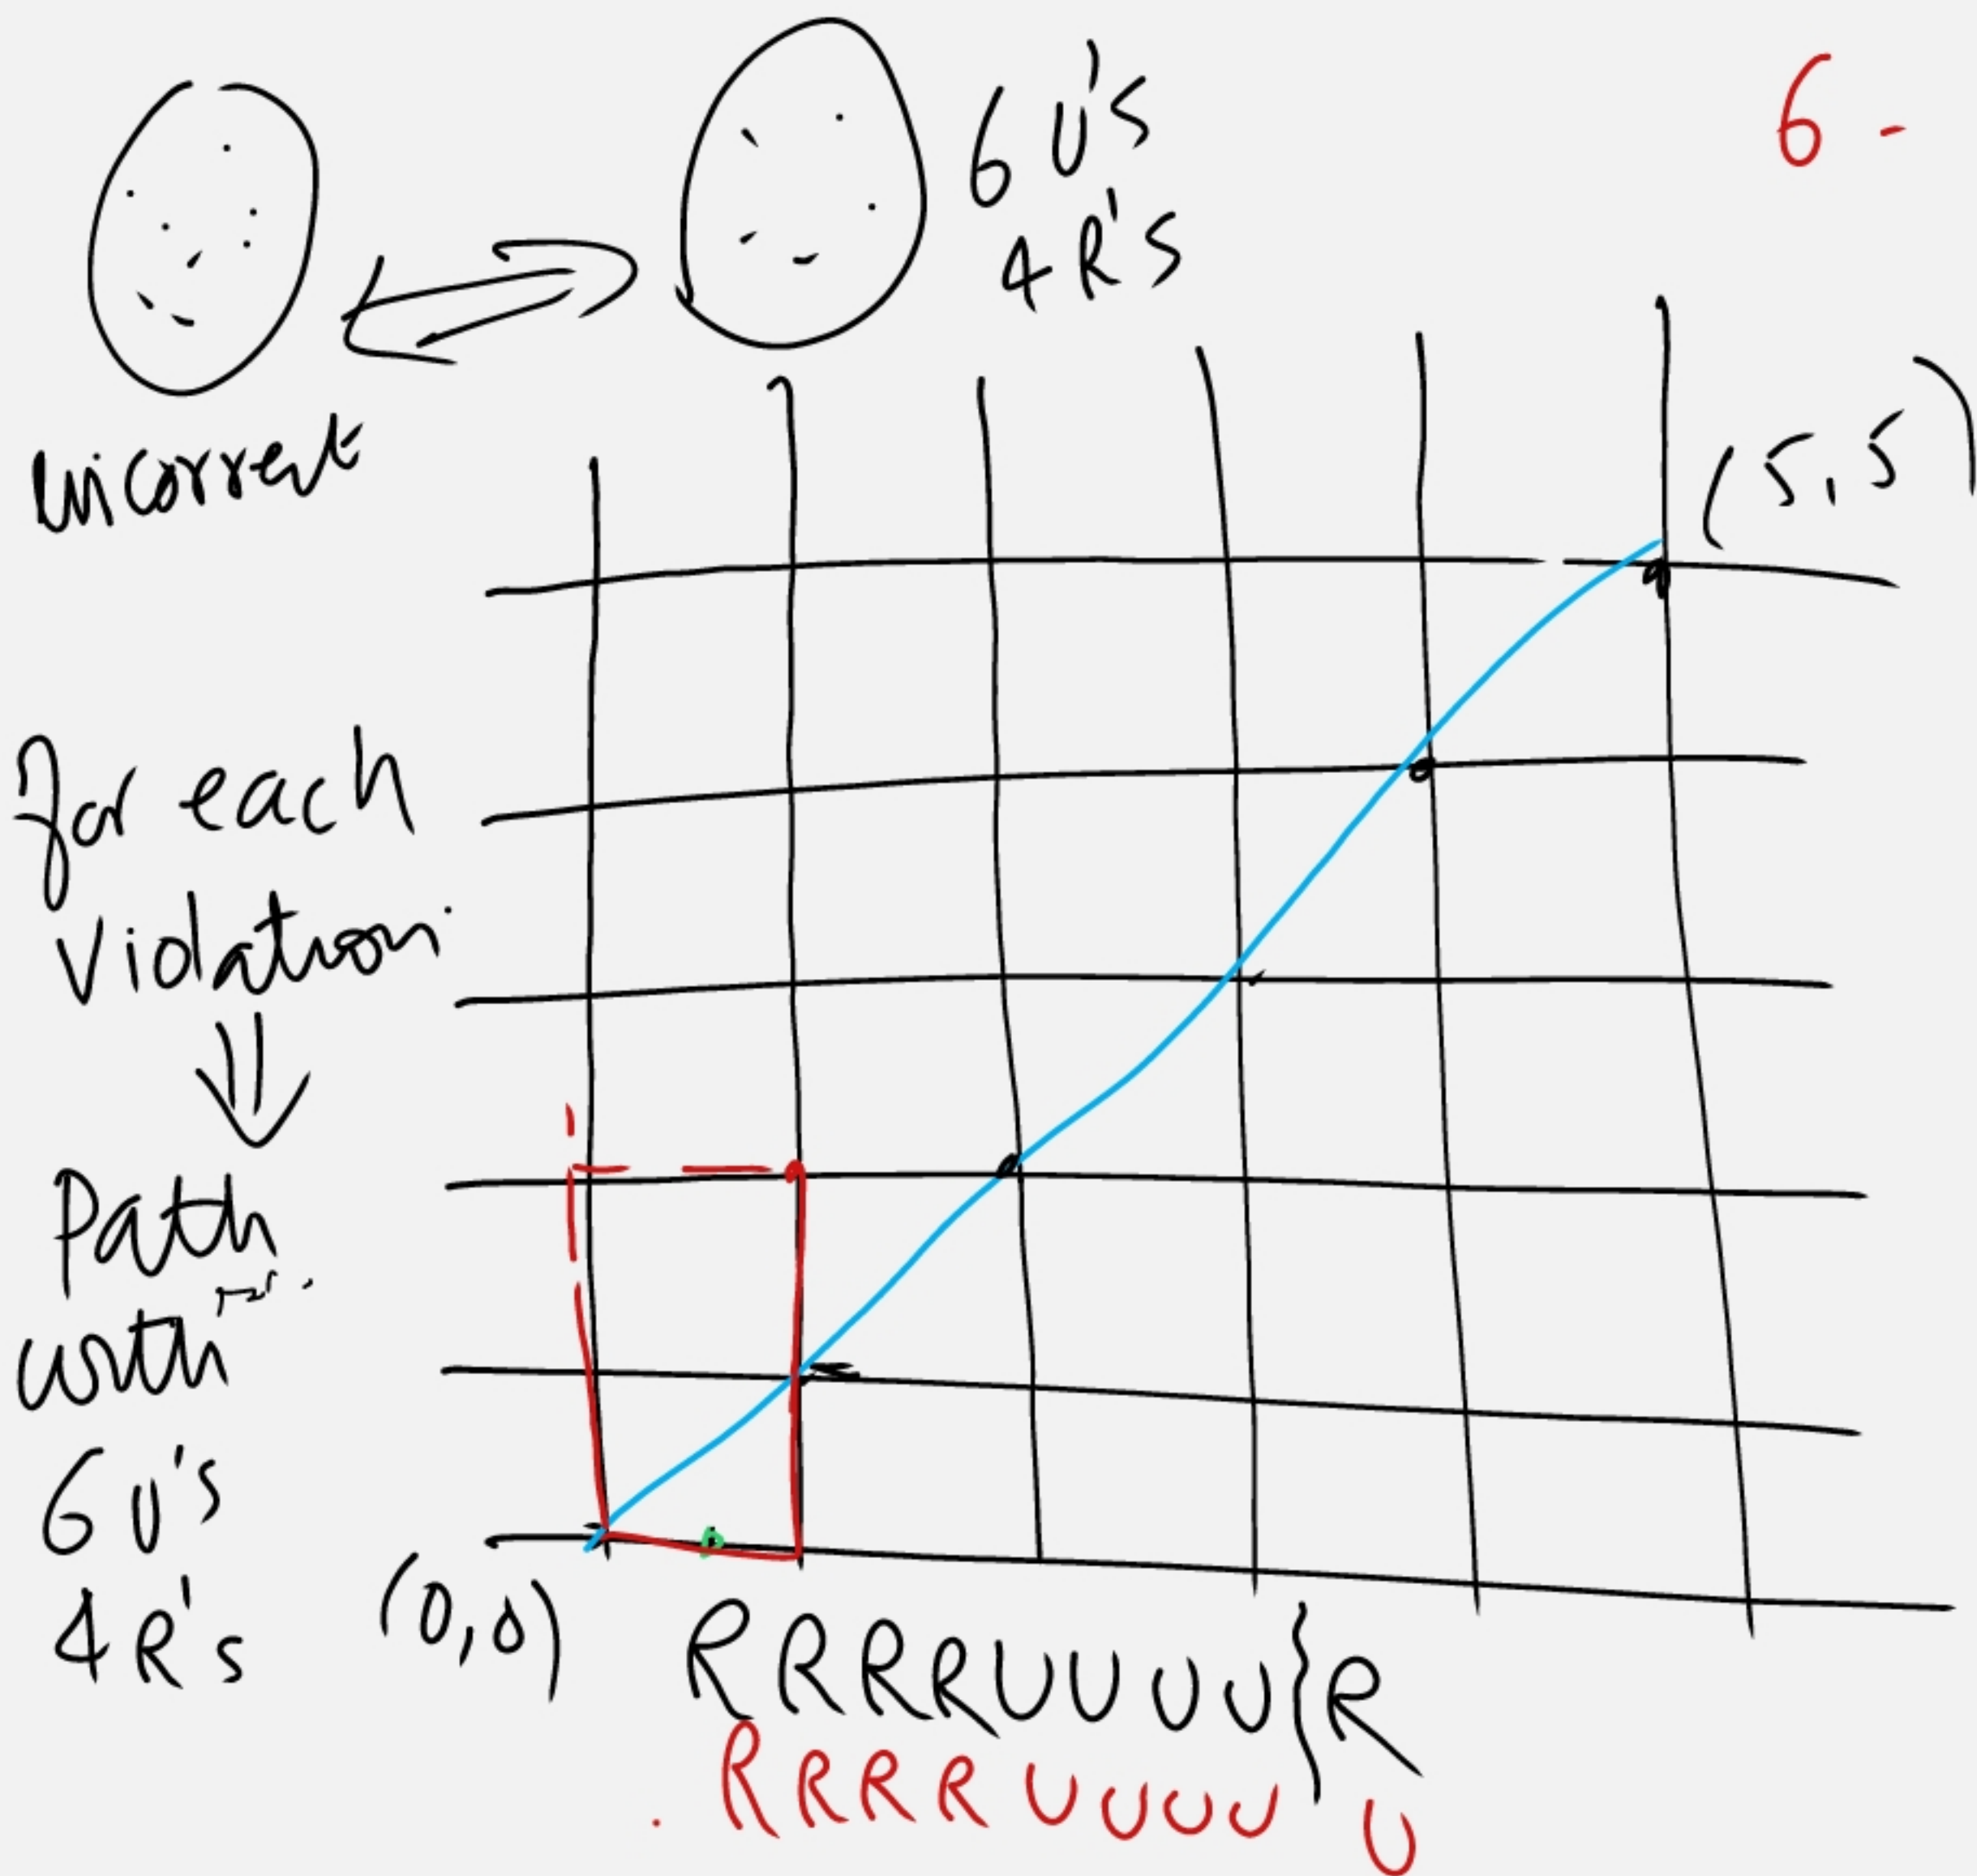 6 U's
4 R's
6 -
Incorrect
(5,5)
for each
violation
Path
with
6 U's
4 R's
(0,0)
RRRRUUUU}R
RRRRUUUU U